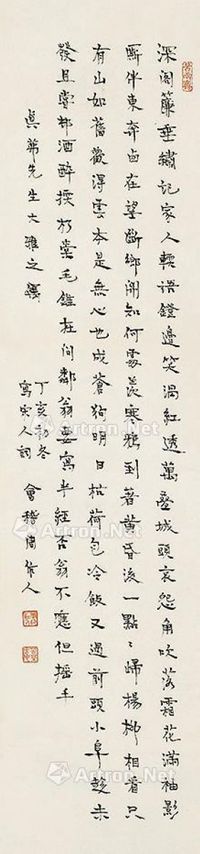 深閣簾垂繡記家人輭語鐙邊笑渦紅透萬疊城頭哀怨角吹落霜花滿袖影
廝伴東奔西走望斷鄉關知何處羨寒鴉到著黃昏後一點〻歸楊柳相看只
有山如舊歎浮雲本是無心也成蒼狗明日枯荷包冷飯又過前頭小阜趁未
發且嘗邨酒醉探枵囊毛錐在問鄰翁要寫牛經否翁不應但搖手
先生大雅之屬
丁亥初冬
寫宋人詞
會稽周作人